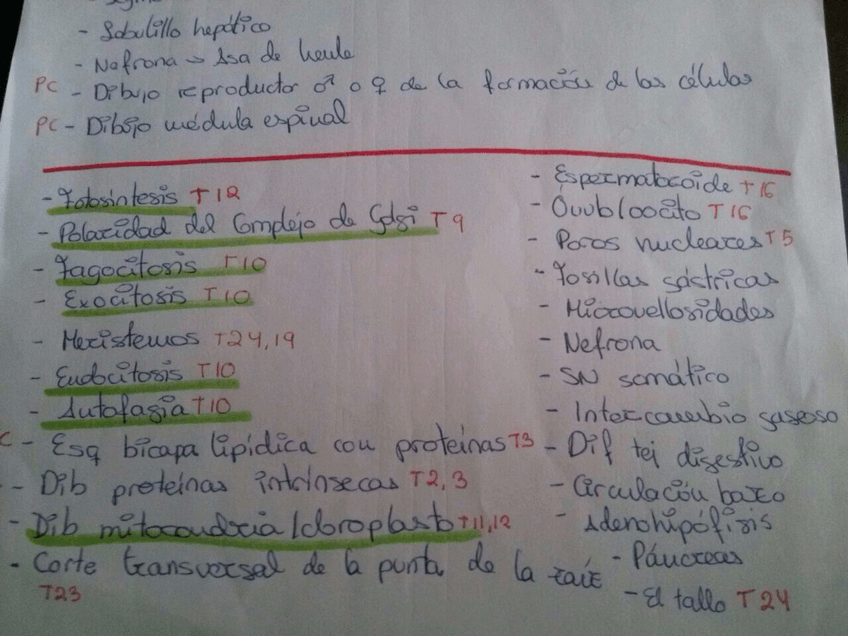 - Lobulillo hepático
- Nefrona → Asa de henle
PC - Dibujo reproductor ♂ o ♀ de la formación de las células
PC - Dibujo médula espinal
- Fotosíntesis T12
- Polaridad del Complejo de Golgi T9
- Fagocitosis T10
- Exocitosis T10
- Meristemos T24,19
- Endocitosis T10
- Autofagia T10
C - Esq bicapa lipídica con proteínas T3
- Dib proteínas intrínsecas T2,3
- Dib mitocondria/cloroplasto T11,12
- Corte transversal de la punta de la raíz
T23
- Espermatozoide T16
- Ovublocito T16
- Poros nucleares T5
- Fosillas gástricas
- Microvellosidades
- Nefrona
- SN somático
- Intercambio gaseoso
- Dif tej digestivo
- Circulación bazo
- Adenohipófisis
- Páncreas
- El tallo T24